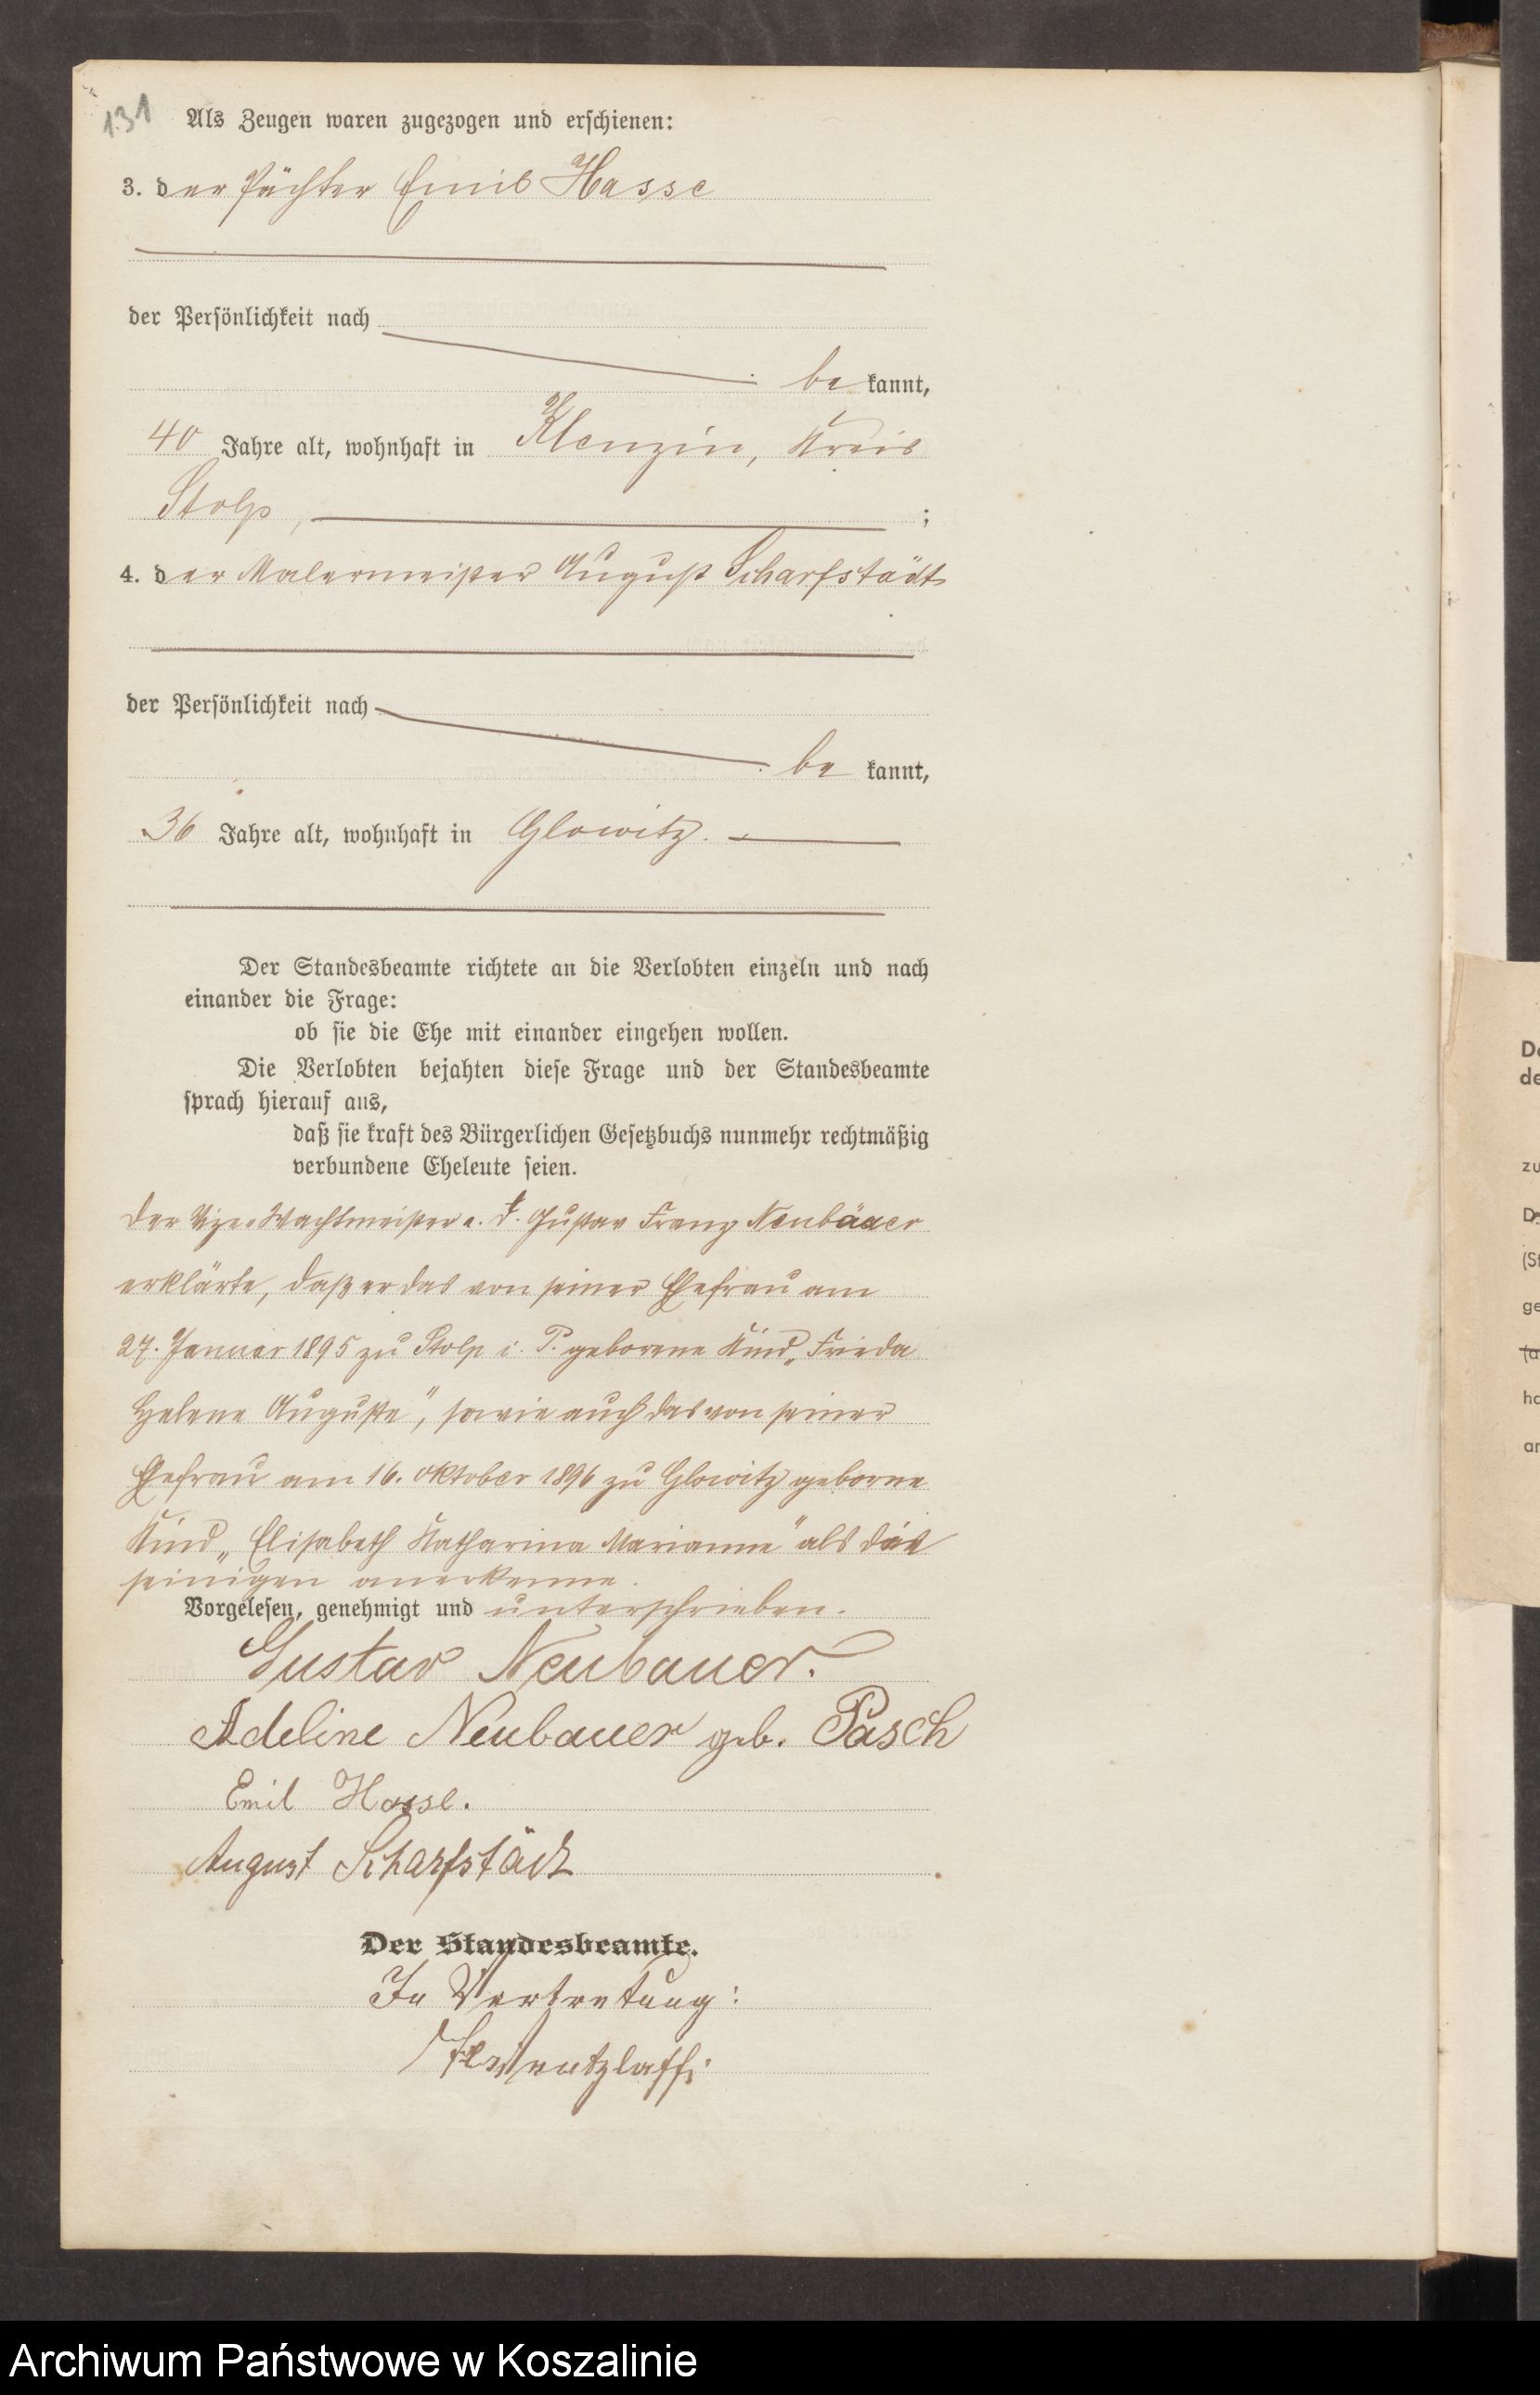 131
Als Zeugen waren zugezogen und erschienen:
3. der Pächter Emil Hasse
der Persönlichkeit nach
be kannt,
40 Jahre alt, wohnhaft in Klenzin, Kreis
Stolp, ;
4. der Malermeister August Scharfstädt
der Persönlichkeit nach
be kannt,
36 Jahre alt, wohnhaft in Glowitz.
Der Standesbeamte richtete an die Verlobten einzeln und nach
einander die Frage:
ob sie die Ehe mit einander eingehen wollen.
Die Verlobten bejahten diese Frage und der Standesbeamte
sprach hierauf aus,
daß sie kraft des Bürgerlichen Gesetzbuchs nunmehr rechtmäßig
verbundene Eheleute seien.
Der Vize-Wachtmeister a. D. Gustav Franz Neubauer
erklärte, daß er das von seiner Ehefrau am
27. Januar 1895 zu Stolp i. P. geborene Kind „Frieda
Helene Auguste", sowie auch das von seiner
Ehefrau am 16. Oktober 1896 zu Glowitz geborne
Kind „Elisabeth Katharina Marianne" als die
seinigen anerkenne.
Vorgelesen, genehmigt und unterschrieben.
Gustav Neubauer.
Adeline Neubauer geb. Pasch
Emil Hasse.
August Scharfstädt
Der Standesbeamte.
In Vertretung:
De
de
zu
(St
ge
ha
an
Archiwum Państwowe w Koszalinie